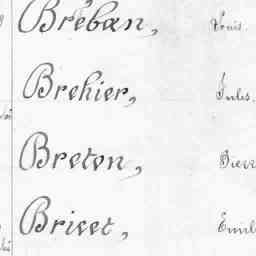 Bréban, Louis.
Brehier, Jules.
Breton, Pierr
Bricet, Emil